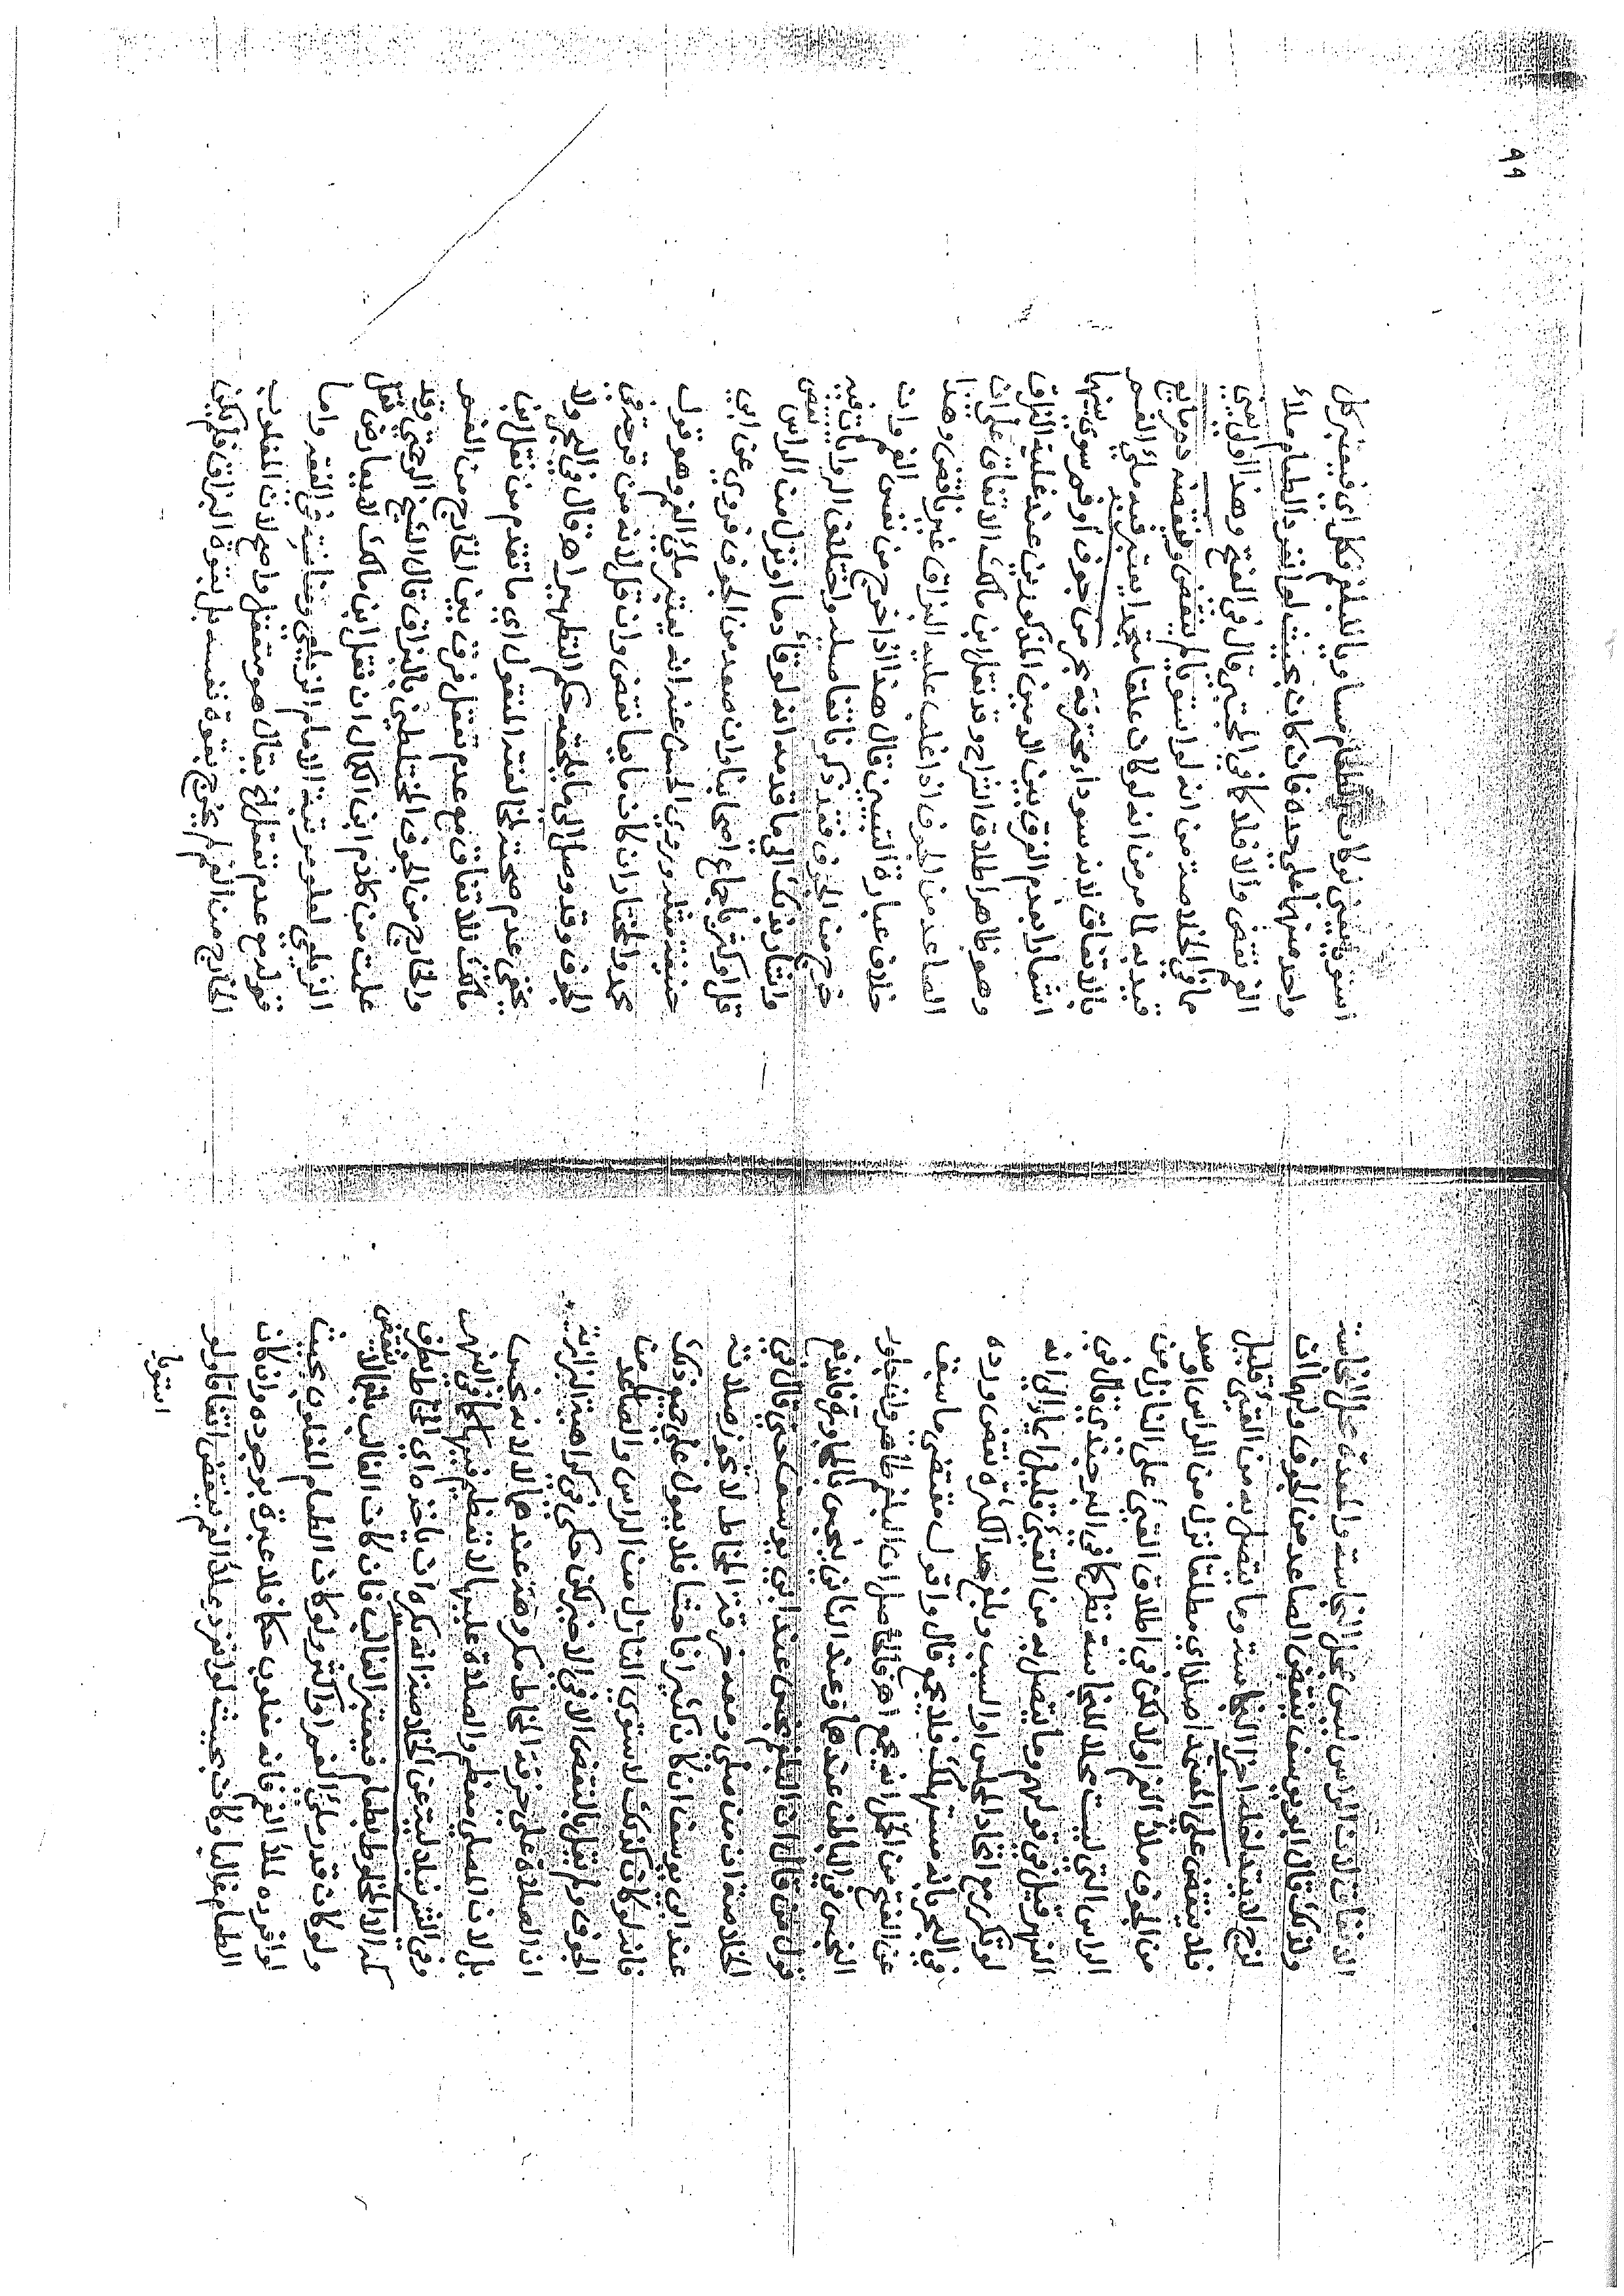 الاتفاق لان الراس ليس محل النجاسة والمعدة محل النجاسة
ولذلك قال ابو يوسف ينقض الصاعد من الجوف ولهما ان
لزج لا يتداخله اجزا النجاسة وما يتصل به من القيئ قليل
فلا ينقض على المعتمد اصلا اي مطلقا نزل من الراس او صعد
من الجوف ملأ الفم اولا لكن في اطلاق القيئ على النازل من
الراس التي ليست محلا للنجاسة نظر كما في البرجندي قال في
النهر قيل في قولهم وما يتصل به من القيئ قليل ايماء الى انه
لو تكرر مع اتحاد المجلس او السبب وبلغ حد الكثرة نقض ورده
في البحر بانه مستهلك فلا يجمع قال واقول مقتضى ما سبق
عن الفتح من المحل انه يجمع اهـ فالحاصل ان البلغم طاهر وان جاور
النجس في الباطن عندهما وعند الثاني ينجس بالمجاورة فاندفع
قول من قال ان البلغم نجس عند ابي يوسف حتى قال في
الخلاصة ان من صلى ومعه خرقة المخاط لا تجوز صلاته
عند ابي يوسف ان كان كثيرا فاحشا فلا يعول على نحو ذلك
فانه لو كان كذلك لاستوى النازل من الراس والصاعد من
الجوف ولم يقل بالنقض الا في الاخير لكن حكى في كراهية البزازية
ان الصلاة على خرقة المخاط مكروهة عندهما لا لانه نجس
بل لان المصلي معظم والصلاة عليها لا تعظيم فيها كما في النهر
وفي الشرنبلالية عن الخلاصة انه يكره ان ياخذه اي المخاط بطرف
كمه الا المخلوط بطعام فيعتبر الغالب فان كان الغالب بلغما لا ينقض
ولو كان قدر ملئ الفم او اكثر ولو كان الطعام المغلوب بحيث
لو افرده ملأ الفم فانه مغلوب حكما فلا عبرة بوجوده وان كان
الطعام غالبا وكان بحيث لو انفرد ملأ الفم ينقض اتفاقا ولو
استويا
٩٩
استويا يعني لو كان الطعام مساويا للبلغم فكل اي فيعتبر كل
واحد منهما على حده فان كان بحيث لو انفرد الطعام ملأ
الفم نقض والا فلا كما في المجتبى قال في الفتح وهذا اولى من
ما في الخلاصة من انه لو استويا لم ينقض وينقضه دم مايع
قيد به لما مر من انه لو كان علقا متجمدا يعتبر فيه ملئ الفم
بالاتفاق لانه سوداء محترقة يخرج من جوف او فم سوى بينهما
اشعارا بعدم الفرق بين الدمين المذكورين عند غلبة البزاق
وهو ظاهر اطلاق الشراح وقد نقل ابن ملك الاتفاق على ان
الصاعد من الجوف اذا غلب عليه البزاق غير ناقض وهذا
خلاف عبارة التبيين قال هذا اذا خرج من نفس الفم وان
خرج من الجوف فقد ذكرنا تفاصيله واختلاف الروايات فيه
واشار بذلك الى ما قدمه انه لو قاء دما او نزل من الراس نقض
قل او كثر باجماع اصحابنا وان صعد من الجوف فروي عن ابي
حنيفة مثله وروى الحسن عنه انه يعتبر ملئ الفم وهو قول
محمد والمختار ان كان مايعا نقض وان قل لانه من قرحة في
الجوف وقد وصل الى ما يلحقه حكم التطهير اهـ قال في البحر ولا
يخفى عدم صحته لمخالفته المنقول اي ما تقدم من نقل ابن
ملك للاتفاق مع عدم تعقل فرق بين الخارج من الفم
والخارج من الجوف المختلطين بالبزاق قال الشيخ الرحمتي وقد
علمت من كلام ابن الكمال ان نقل ابن ملك لا يعارض نقل
الزيلعي لعلو مرتبة الامام الزيلعي وتفانيه في الفقه واما
قوله مع عدم تعقل الخ يقال هو متعقل واضح لان المغلوب
الخارج من الفم لم يخرج بقوة نفسه بل بقوة البزاق فلم يكن